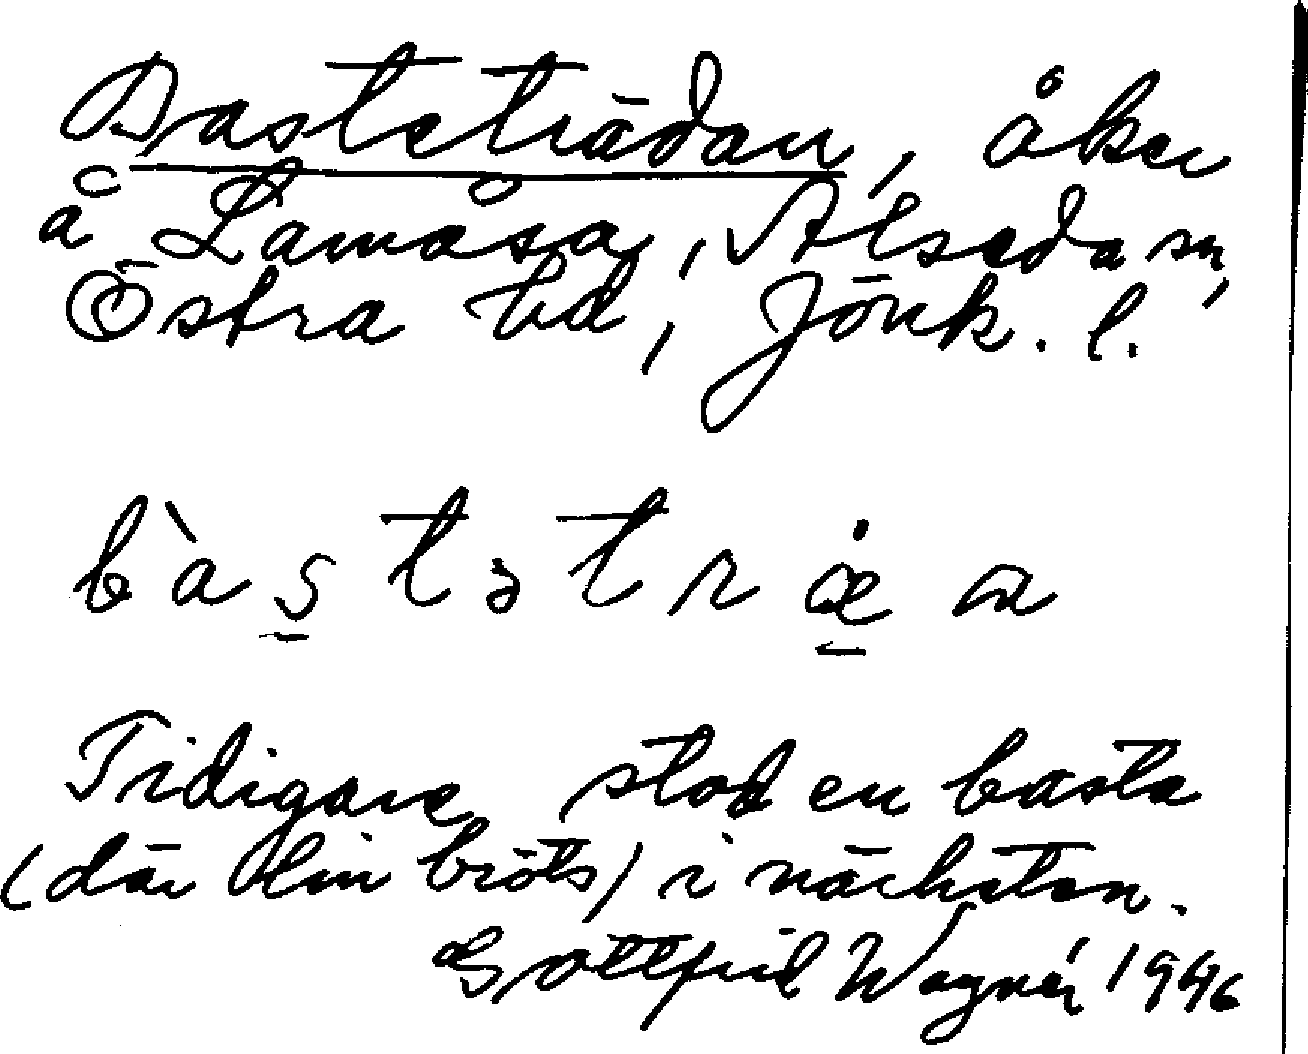 Basteträdan, åker
å Lamåsa, Alseda sn,
Östra hd, Jönk. l.
bàstətræ a
Tidigare stod en basta
(där lin bröts) i närheten.
Gottfrid Wagnér 1946